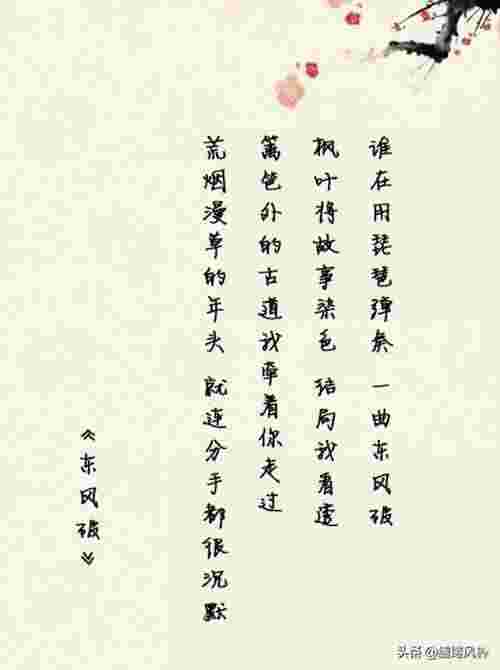 谁在用琵琶弹奏 一曲东风破
枫叶将故事染色 结局我看透
篱笆外的古道我牵着你走过
荒烟漫草的年头 就连分手都很沉默
《东风破》
头条@